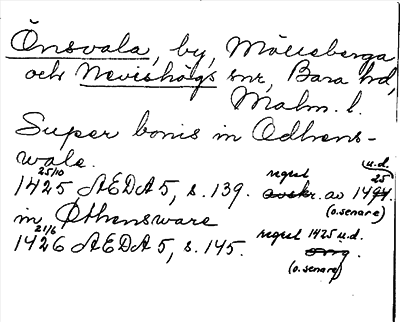 Önsvala, by, Mölleberga
och Nevishögs snr, Bara hd,
Malm. l.
Super bonis in Odhens-
wale.
25/10 1425 AEDA 5, s. 139. regest avskr. av 1494. u.d. 25 (o. senare)
in Othensware
21/6 1426 AEDA 5, s. 145. regest 1425 u.d.
(o. senare)